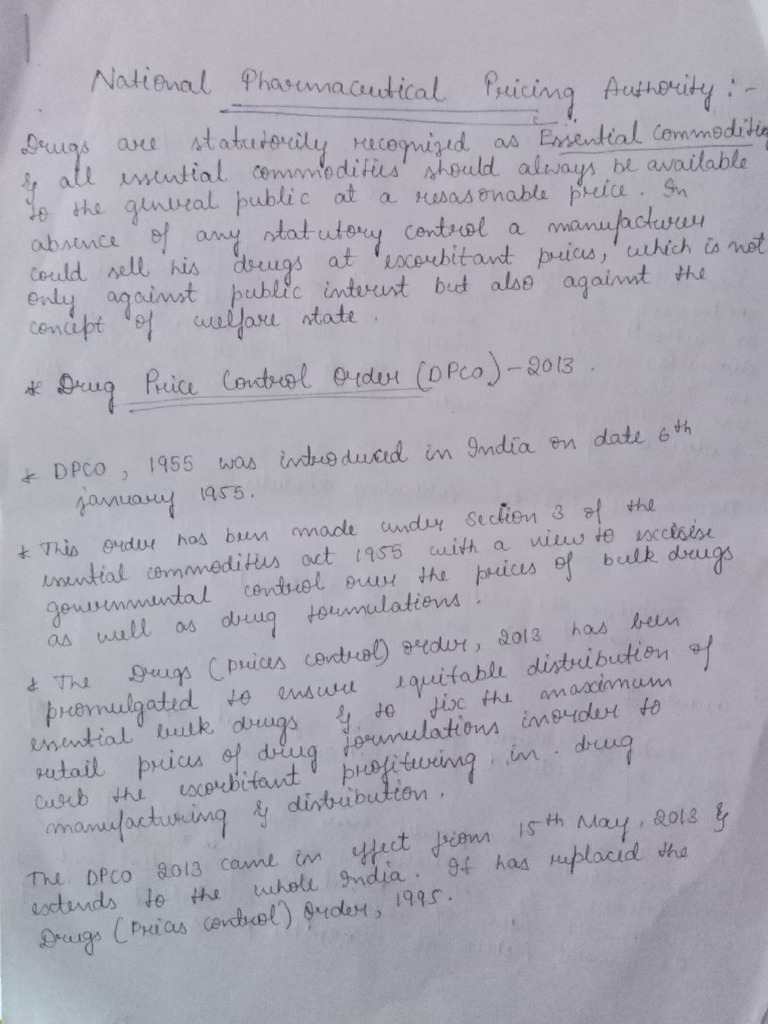 National Pharmaceutical Pricing Authority :-
Drugs are statutorily recognized as Essential Commodities
& all essential commodities should always be available
to the general public at a resasonable price. In
absence of any statutory control a manufacturer
could sell his drugs at excorbitant prices, which is not
only against public interest but also against the
concept of welfare state.
* Drug Price Control Order (DPCO) - 2013.
* DPCO, 1955 was introduced in India on date 6th
january 1955.
* This order has been made under section 3 of the
essential commodities act 1955 with a view to excleise
governmental control over the prices of bulk drugs
as well as drug formulations.
* The Drugs (prices control) order, 2013 has been
promulgated to ensure equitable distribution of
essential bulk drugs & to fix the maximum
retail prices of drug formulations inorder to
curb the excorbitant profituring in drug
manufacturing & distribution.
The DPCO 2013 came in effect from 15th May, 2013 &
extends to the whole India. It has replaced the
Drugs (prices control) Order, 1995.